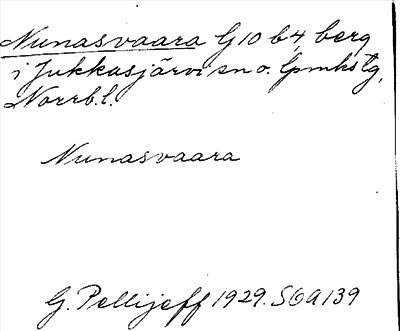 Nunasvaara G10 b4, berg
i Jukkasjärvi sn o. lpmkstg,
Norrb.l.
Nunasvaara
G. Pellijeff 1929. SOA139